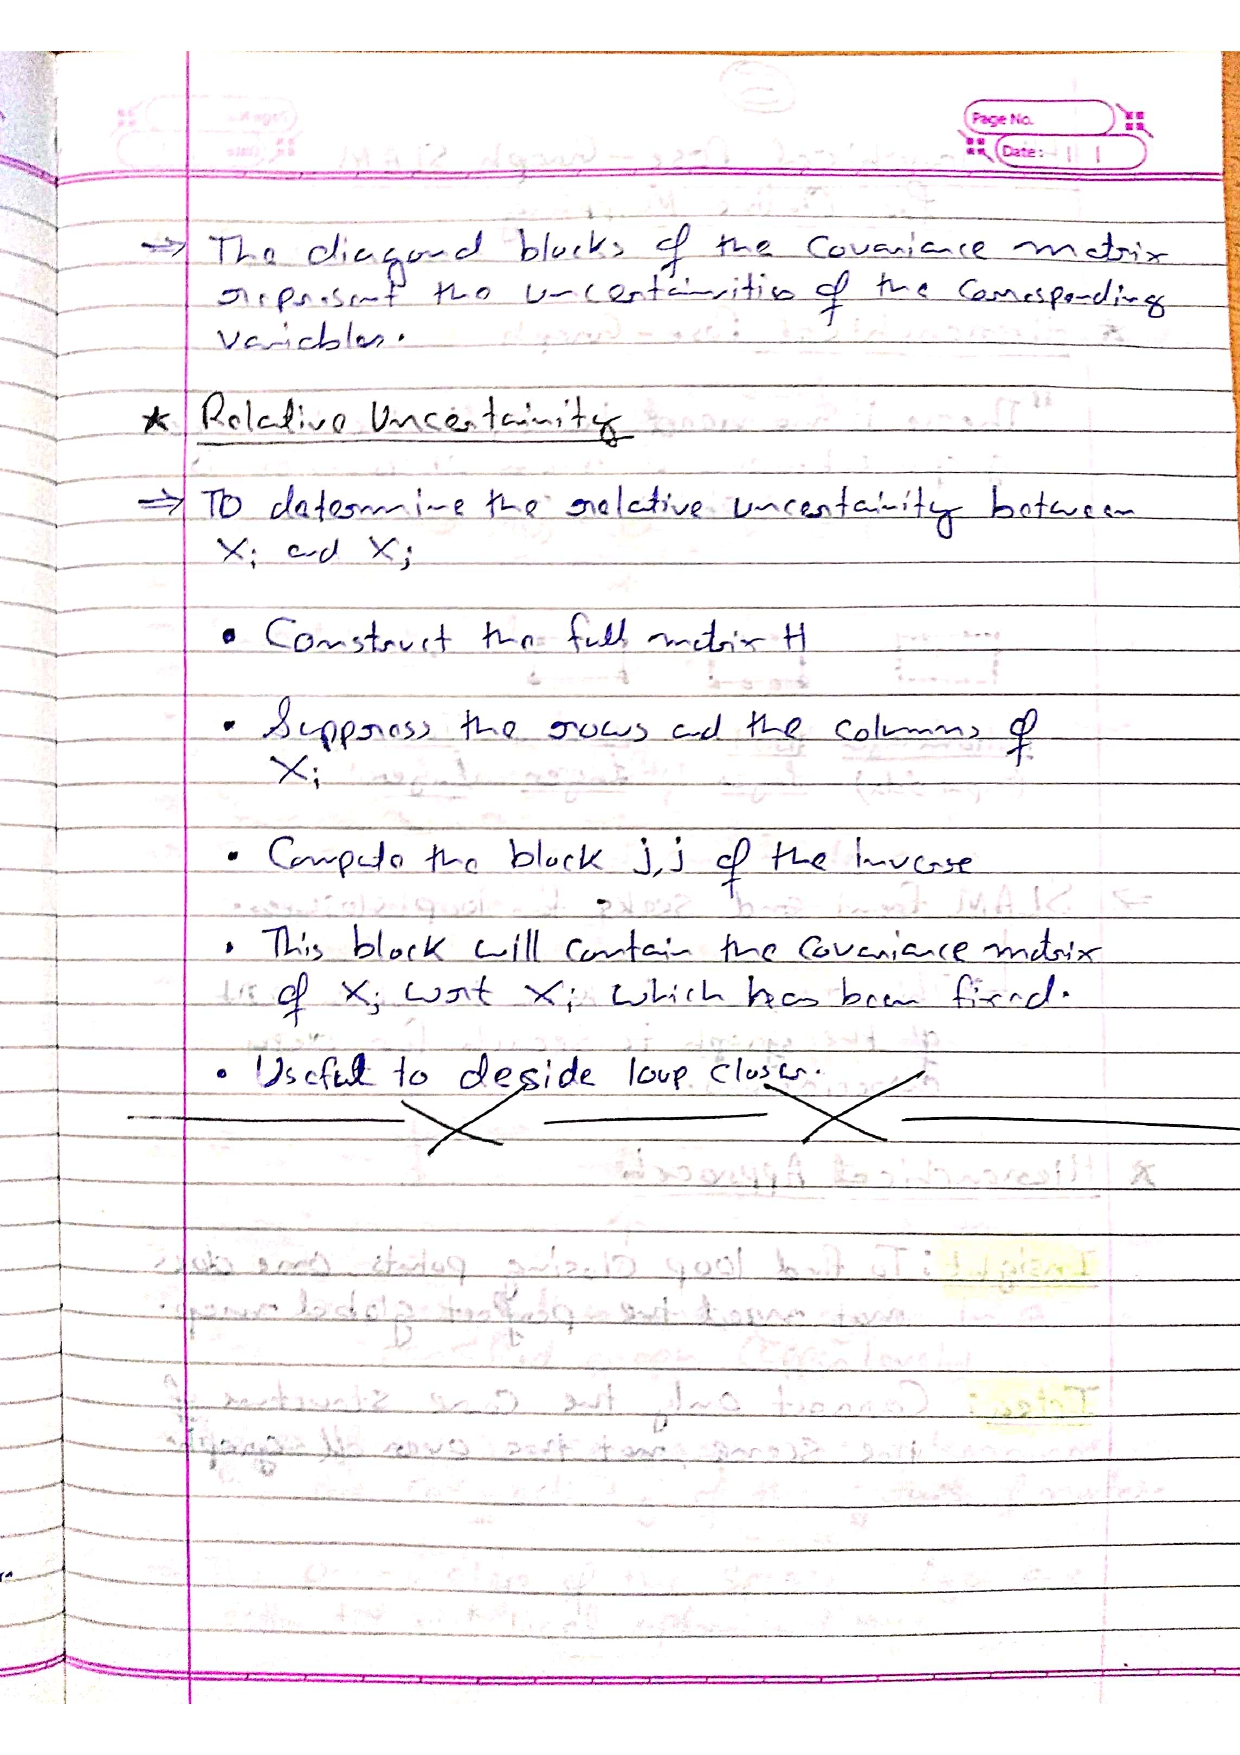 Page No.
Date: / /
⇒ The diagonal blocks of the covariance matrix
represent the uncertainities of the corresponding
variables.
★ Relative Uncertainity
⇒ To determine the relative uncertainity between
Xi and Xj
• Construct the full matrix H
• Suppress the rows and the columns of
Xi
• Compute the block j,j of the inverse
• This block will contain the covariance matrix
of Xj wrt Xi which has been fixed.
• Useful to deside loop closer.